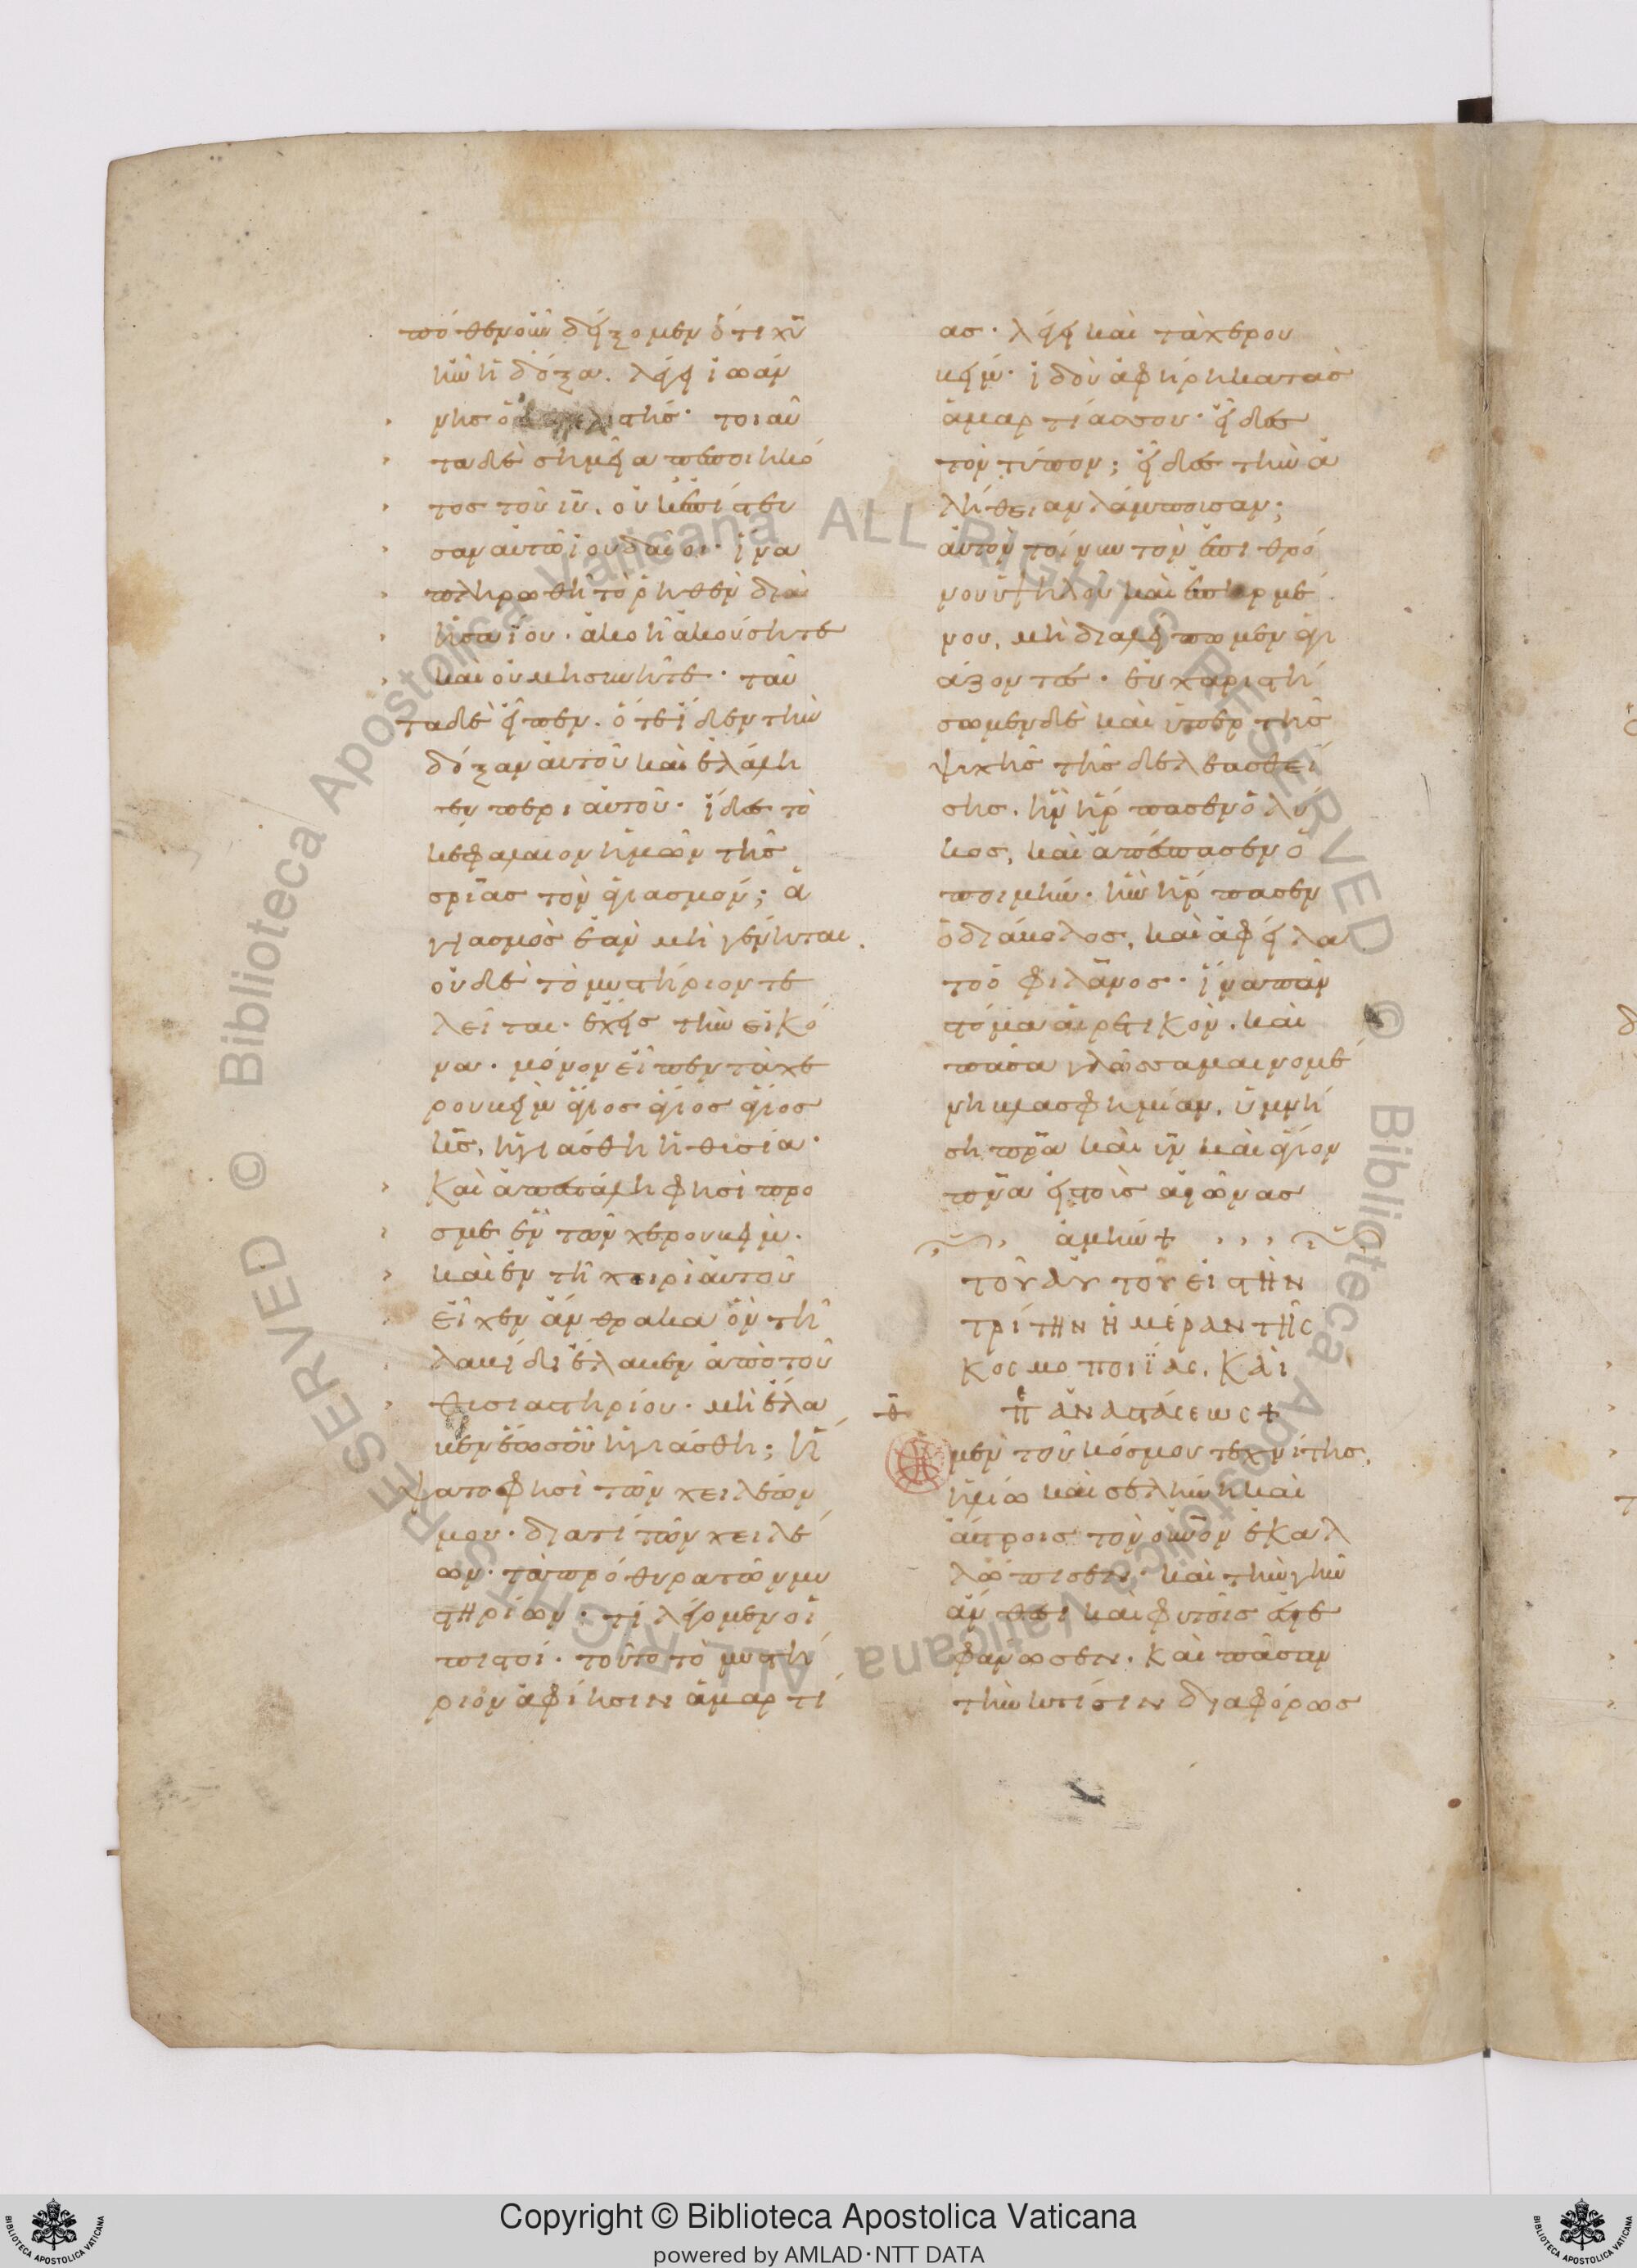 πόθεν οὖν δείξομεν ὅτι χῦ
ἦν ἡ δόξα. λέγει ἰωάν
νης ὁ τής· τοιαῦ
τα δὲ σημεῖα πεποιηκό
τος τοῦ ιῦ. οὐκ ἐπίστευ
σαν αὐτῶ ἰουδαῖοι· ἵνα
πληρωθῆ τὸ ῥηθὲν διὰ
ἡσαΐου· ἀκοῆ ἀκούσητε
καὶ οὐ μὴ συνῆτε· ταῦ
τα δὲ εἶπεν. ὅτε εἶδεν τὴν
δόξαν αὐτοῦ καὶ ἐλάλη
σεν περι αὐτοῦ· εἶδες τὸ
κεφάλαιον ἡμῶν τῆς
σρίας τὸν ἁγιασμόν; ἁ
γιασμὸς ἐὰν μὴ γένηται
οὐδὲ τὸ μυστήριον τε
λεῖται· ἔχεις τὴν εἰκό
να· μόνον εἶπεν τὰ χε
ρουβεὶμ ἅγιος ἅγιος ἅγιος
κς, ἡγιάσθη ἡ θυσία·
Καὶ ἀπεστάλη φησὶ προ
σμε ἓν τῶν χερουβείμ·
καὶ ἐν τῆ χειρὶ αὐτοῦ
εἶχεν ἄνθρακα ὃν τῆ
λαβίδι ἔλαβεν ἀπὸ τοῦ
θυσιαστηρίου· μὴ ἔλα
βεν ἕως οὗ ἡγιάσθη; ἥ
ψατο φησὶ τῶν χειλέων
μου· διατί τῶν χειλέ
ων· τὰ πρόθυρα τῶν μυ
στηρίων· τί λέγομεν οἱ
πιστοί· τοῦτο τὸ μυστή
ριον ἀφίησιν ἁμαρτί
ας· λέγει καὶ τὰ χερου
βείμ· ἰδοὺ ἀφήρηκα τὰς
ἁμαρτίας σου· εἶδες
τὸν τύπον; εἶδες τὴν ἀ
λήθειαν λάμπουσαν;
αὐτὸν τοίνυν τὸν ἐπὶ θρό
νου ὑψηλοῦ καὶ ἐπηρμέ
νου, μὴ διαλείπωμεν ἁγι
άζοντες· εὐχαριστή
σωμεν δὲ καὶ ὑπερ τῆς
ψυχῆς τῆς δελεασθεί
σης. ἣν ἥρπασεν ὁ λύ
κος, καὶ ἀπέσπασεν ὁ
ποιμήν· ἣν ἥρπασεν
ὁ διάβολος, καὶ ἀφείλα
το ὁ φιλᾶνος· ἵνα πᾶν
στόμα αἱρετικὸν. καὶ
πᾶσα γλῶσσα μαινομέ
νη βλασφημίαν, ὑμνή
ση πρᾶ καὶ υν καὶ ἅγιον
πνᾶ εἰς τοὺς αἰῶνας
ἀμήν +
τοῦ αὐτοῦ εἰς τὴν
τρίτην ἡμέραν τῆς
κοσμοποιΐας. καὶ
π ἀναστάσεως +
Ὁ μὲν τοῦ κόσμου τεχνίτης,
ἡλίω καὶ σελήνη καὶ
ἄστροις τὸν οὐνὸν ἐκαλ
λώπισεν· καὶ τὴν γῆν
ἄνθεσι καὶ φυτοῖς ἐστε
φάνωσεν. Καὶ πᾶσαν
τὴν κτίσιν διαφόρως
Copyright © Biblioteca Apostolica Vaticana
powered by AMLAD·NTT DATA